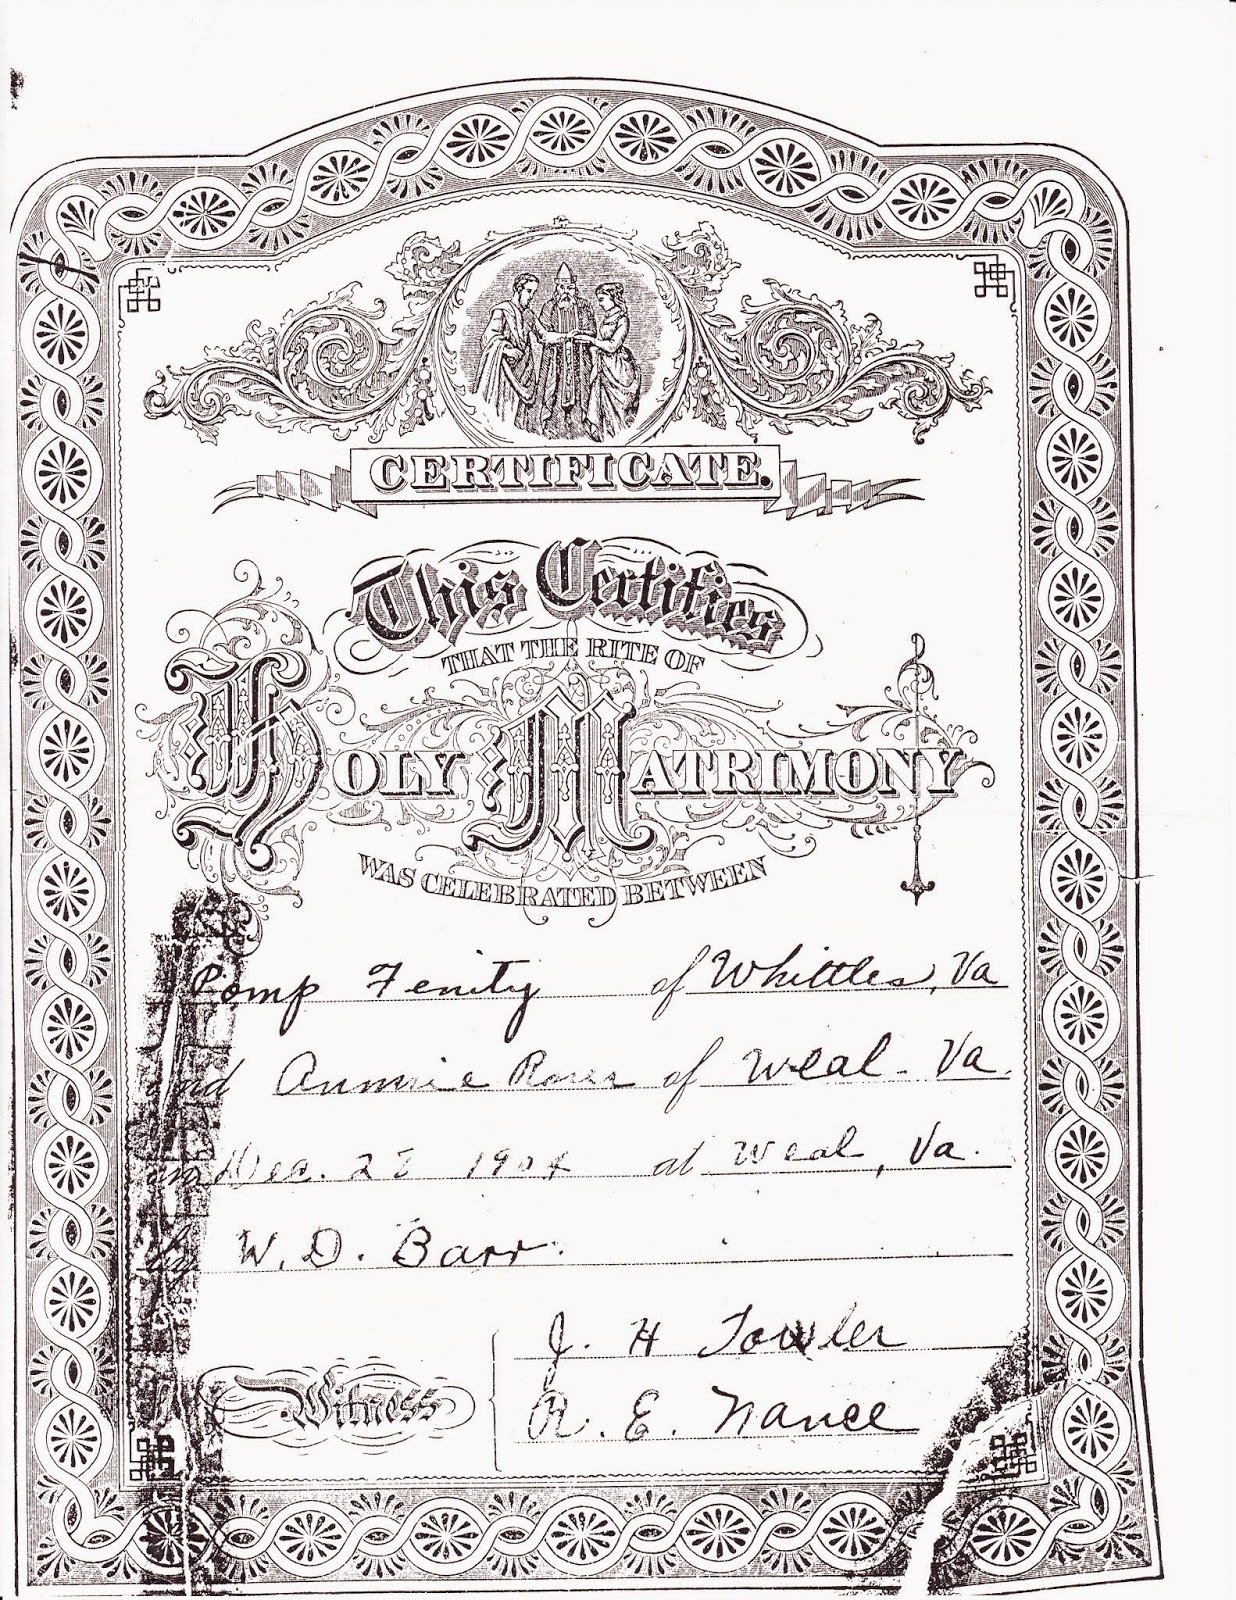 CERTIFICATE.
This Certifies
THAT THE RITE OF
HOLY MATRIMONY
WAS CELEBRATED BETWEEN
Pomp Fenity of Whittles, Va
and Annie of Weal Va.
on Dec. 28 1904 at Weal, Va.
by W. D. Barr.
J. H Fowler
Witness
R. E. Nance